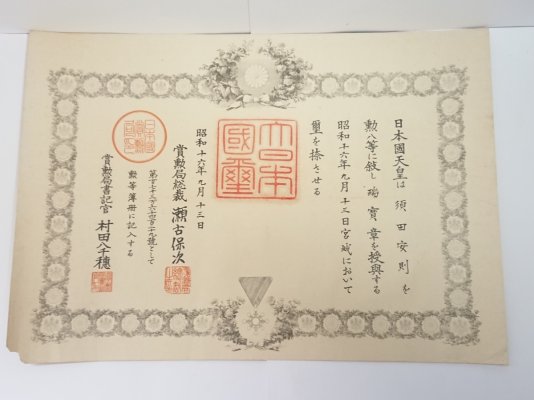 日本國天皇は須田安則を
勲八等に敍し瑞寶章を授與する
昭和十六年九月十三日宮城において
璽を捺させる
大日本國璽
昭和十六年九月十三日
賞勲局総裁 瀬古保次
勲等簿冊に記入する
賞勲局書記官 村田八千穂